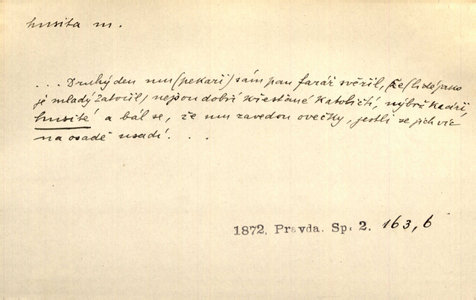 husita m.
... Druhý den mu (pekaři) sám pan farář věřil, že (lidé) jako
je mladý Zatočil, nejsou dobří křesťané katoličtí, nýbrž kacíři,
husité a bál se, že mu zavedou ovečky, jestli se jich víc
na osadě usadí. . . .
1872. Pravda. Sp. 2. 163,6